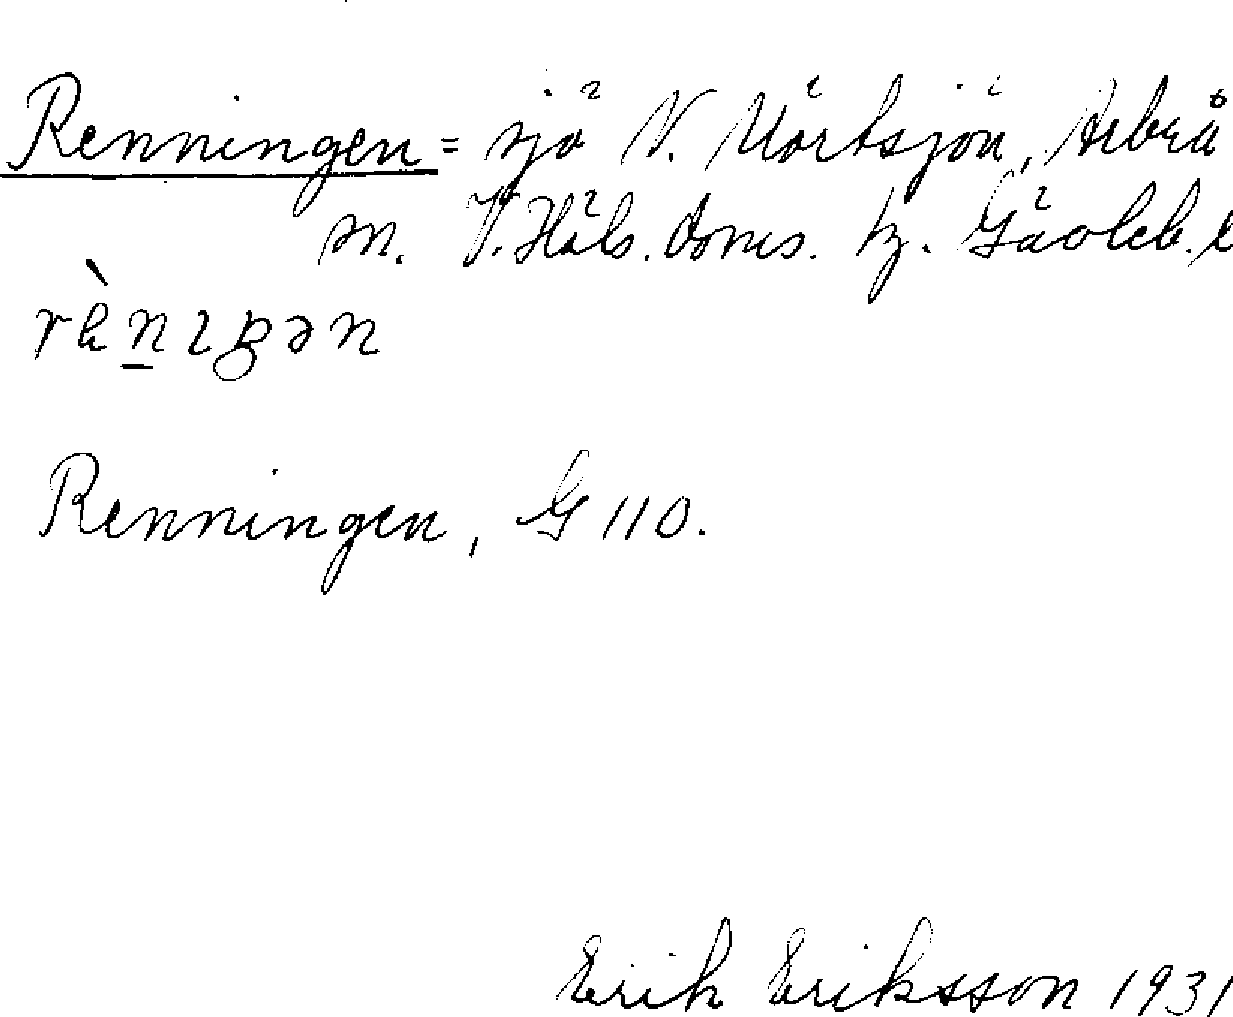 Renningen = sjö V. Mörtsjön, Arbrå
sn. V. Häls. doms. tg. Gävleb. l
rὲnıŋən
Renningen, G 110.
Erik Eriksson 1931